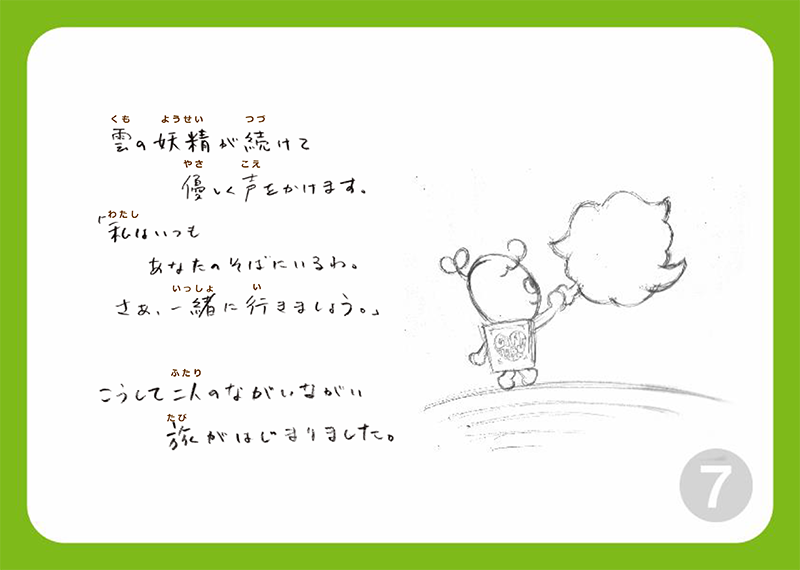 くも ようせい つづ
雲の妖精が続けて
やさ こえ
優しく声をかけます。
わたし
「私はいつも
あなたのそばにいるわ。
いっしょ い
さあ、一緒に行きましょう。」
ふたり
こうして二人のながいながい
たび
旅がはじまりました。
7